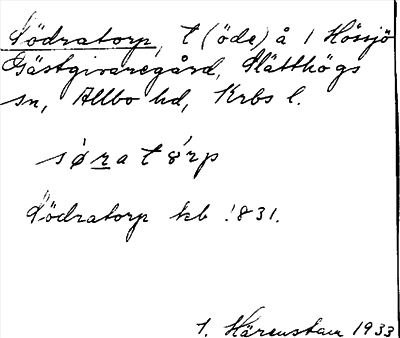 Södratorp, t (öde) å 1 Hössjö
Gästgivaregård, Slätthögs
sn, Allbo hd, Krbs l.
sørat 8rp
Södratorp kb 1831.
1. Härenstam 1933